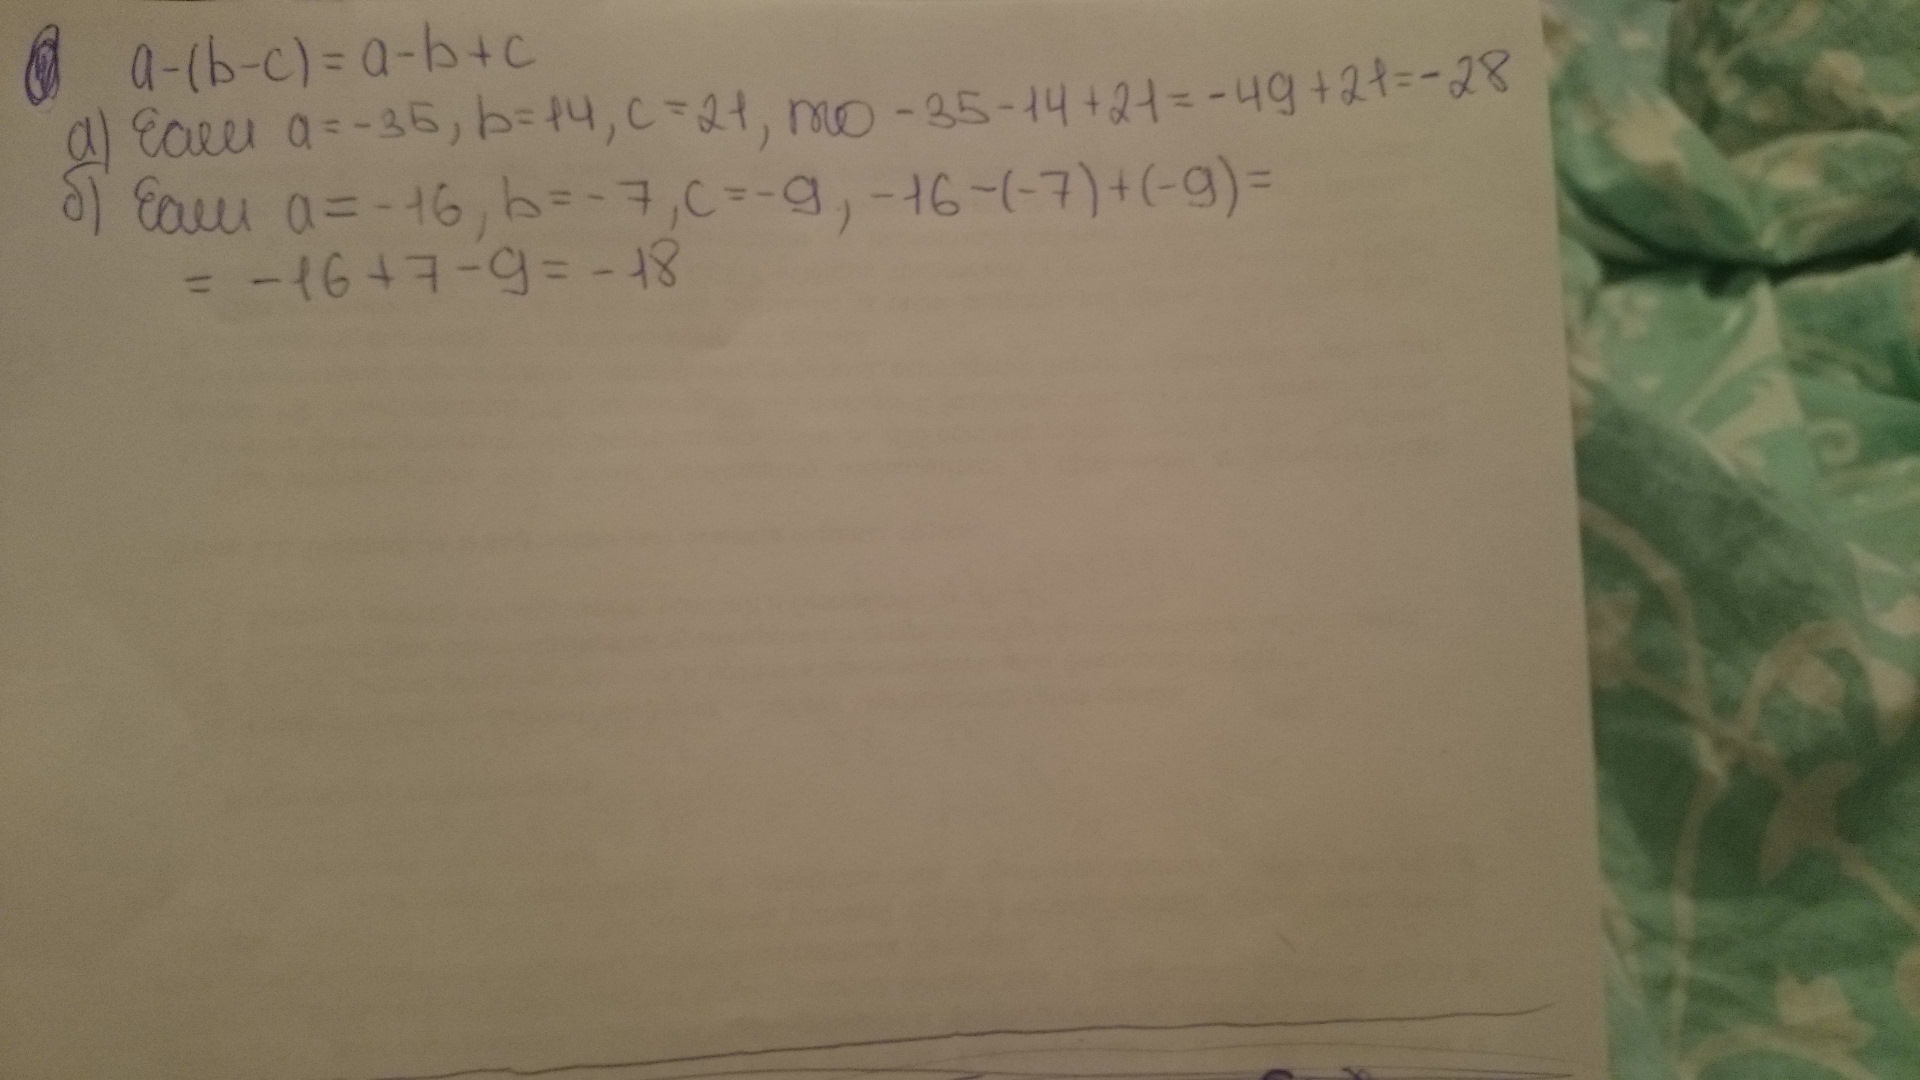 a-(b-c)=a-b+c
а) Если a=-35, b=14, c=21, то -35-14+21=-49+21=-28
б) Если a=-16, b=-7, c=-9, -16-(-7)+(-9)=
= -16+7-9=-18